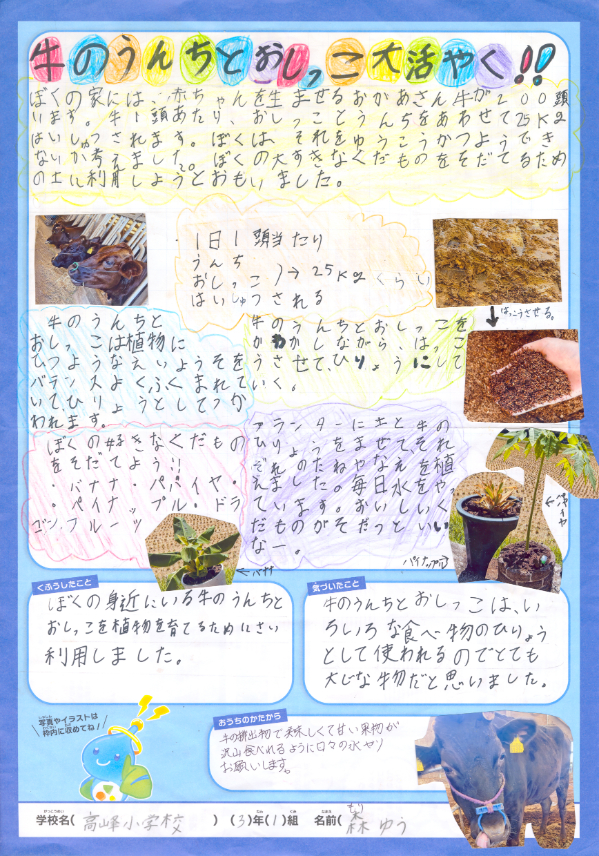 牛のうんちとおしっこ大活やく!!
ぼくの家には、赤ちゃんを生ませるおかあさん牛が200頭
います。牛1頭あたり、おしっことうんちをあわせて25Kg
はいしゅつされます。ぼくは、それをゆうこうかつようでき
ないか考えました。ぼくの大すきなくだものをそだてるため
の土に利用しようとおもいました。
・1日1頭当たり
うんち
おしっこ
)→25Kgくらい
はいしゅつされる
はっこうさせる。
牛のうんちと
おしっこは植物に
ひつようなえいようそを
バランスよくふくまれて
いて、ひりょうとしてつか
われます。
牛のうんちとおしっこを
かわかしながら、はっこ
うさせて、ひりょうにして
いく。
ぼくの好きなくだもの
をそだてよう!!
・バナナ・パパイヤ・
・ペイナップル・ドラ
ゴンフルーツ
プランターに土と牛の
ひりょうをませて、それ
ぞれのたねやなえを植
えました。毎日水をやっ
ています。おいしいく
だものがそだつといい
なー。
←バナナ
パイナップル
←パパイヤ
くふうしたこと
ぼくの身近にいる牛のうんちと
おしっこを植物を育てるためにさい
利用しました。
気づいたこと
牛のうんちとおしっこは、い
ろいろな食べ物のひりょう
として使われるのでとても
大じな物だと思いました。
写真やイラストは
枠内に収めてね!
おうちのかたから
牛の排出物で美味しくて甘い果物が
沢山食べれるように日々の水やり
お願いします。
学校名(高峰小学校)(3)年(1)組 名前(森 ゆう